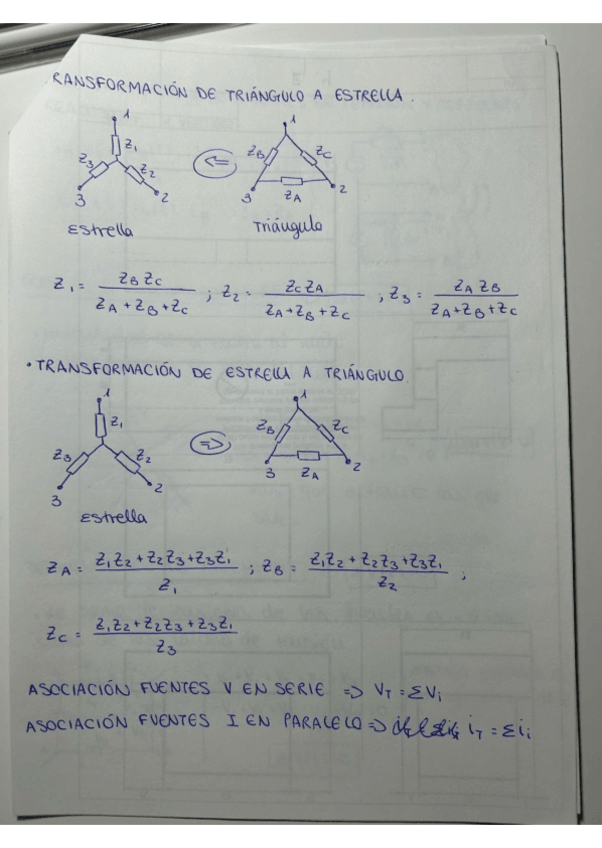 RANSFORMACIÓN DE TRIÁNGULO A ESTRELLA.
1 1
Z3 Z1 Z2 ⇐ ZB ZC
3 2 3 ZA 2
Estrella Triángulo
Z1 = ZB ZC / (ZA + ZB + ZC) ; Z2 = ZC ZA / (ZA + ZB + ZC) ; Z3 = ZA ZB / (ZA + ZB + ZC)
• TRANSFORMACIÓN DE ESTRELLA A TRIÁNGULO.
1 1
Z1 Z3 Z2 ⇒ ZB ZC
3 2 3 ZA 2
Estrella
ZA = (Z1Z2 + Z2Z3 + Z3Z1) / Z1 ; ZB = (Z1Z2 + Z2Z3 + Z3Z1) / Z2 ;
ZC = (Z1Z2 + Z2Z3 + Z3Z1) / Z3
ASOCIACIÓN FUENTES V EN SERIE => VT = ΣVi
ASOCIACIÓN FUENTES I EN PARALELO => iT = Σii